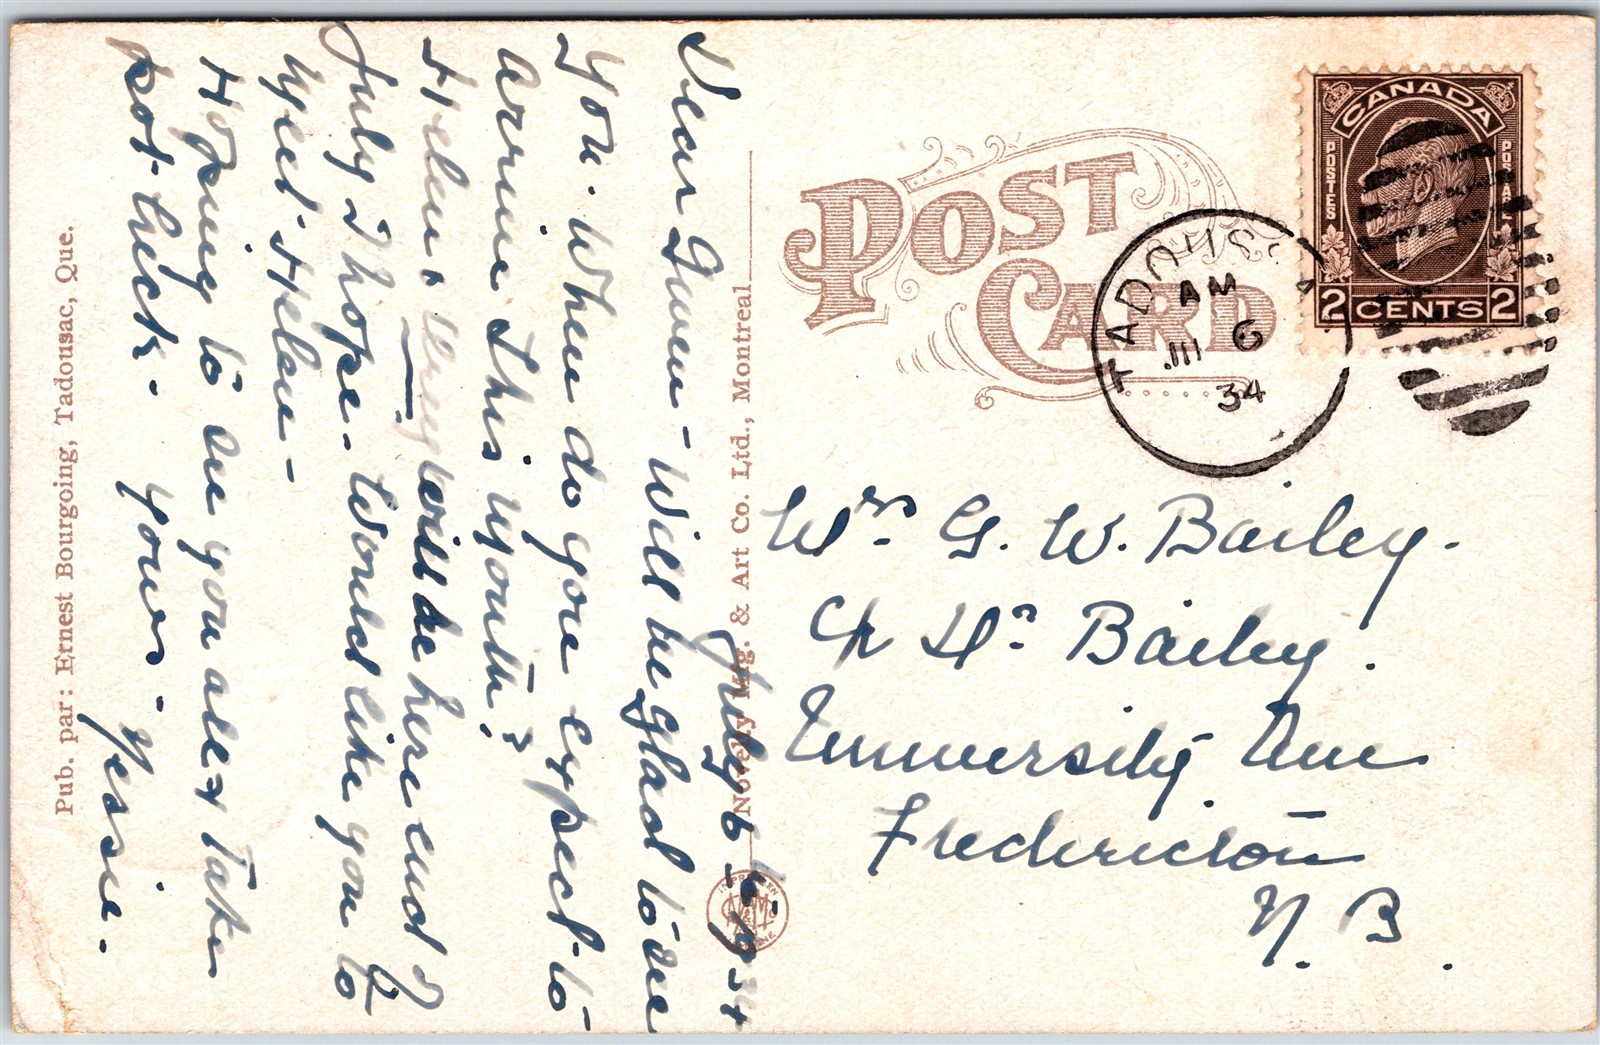 POST CARD
CANADA
POSTES
POSTAGE
2 CENTS 2
TADOUS
AM
JUL 6
34
Mrs. G. W. Bailey.
c/o Dr. Bailey.
University Ave
Fredericton
N. B.
July 5-1934
Dear Gwen - Will be glad to see
you. When do you expect to
arrive this month?
Helen will be here end of
July I hope. Would like you to
meet Helen -
Hoping to see you all & take
pot luck. yours - Jessie.
Novelty Mfg. & Art Co. Ltd., Montreal
Pub. par: Ernest Bourgoing, Tadousac, Que.